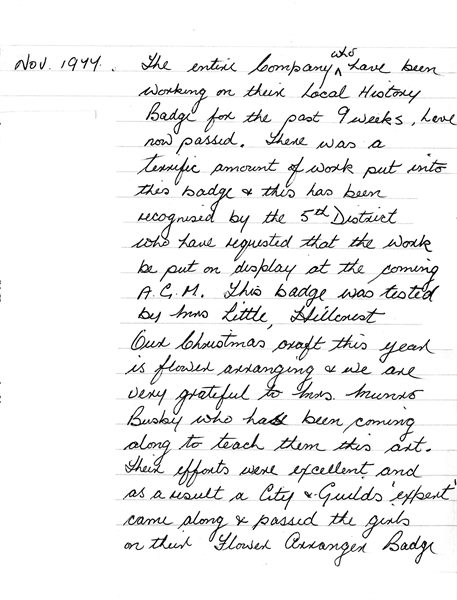 Nov. 1977. The entire Company who have been
working on their Local History
Badge for the past 9 weeks, have
now passed. There was a
terrific amount of work put into
this badge & this has been
recognised by the 5th District
who have requested that the work
be put on display at the coming
A.G.M. This badge was tested
by Mrs Little, Hillcrest
Our Christmas craft this year
is flower arranging & we are
very grateful to Mrs. Munro
Busby who has been coming
along to teach them this art.
Their efforts were excellent and
as a result a City & Guilds 'expert'
came along & passed the girls
on their Flower Arranger Badge